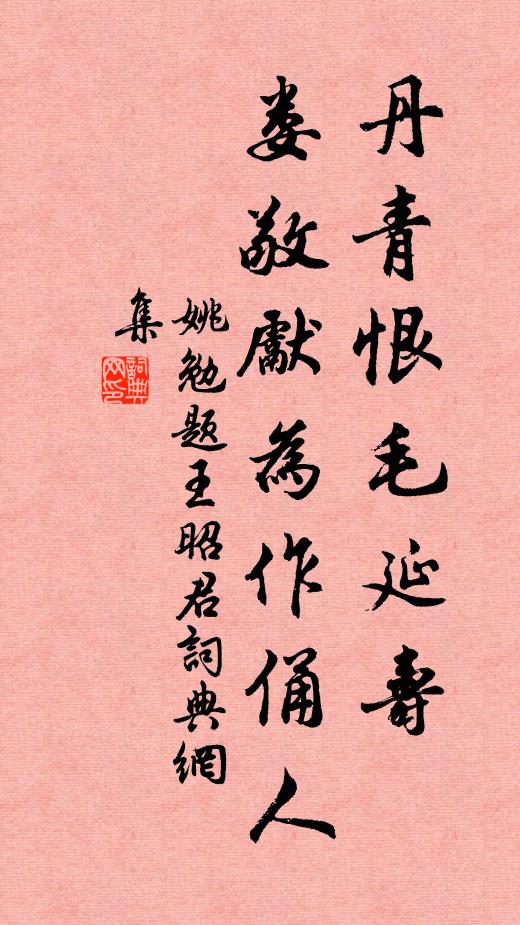 丹青恨毛延壽
娄敬獻為作俑人
姚勉题王昭君詞典網
集
詞典
网印